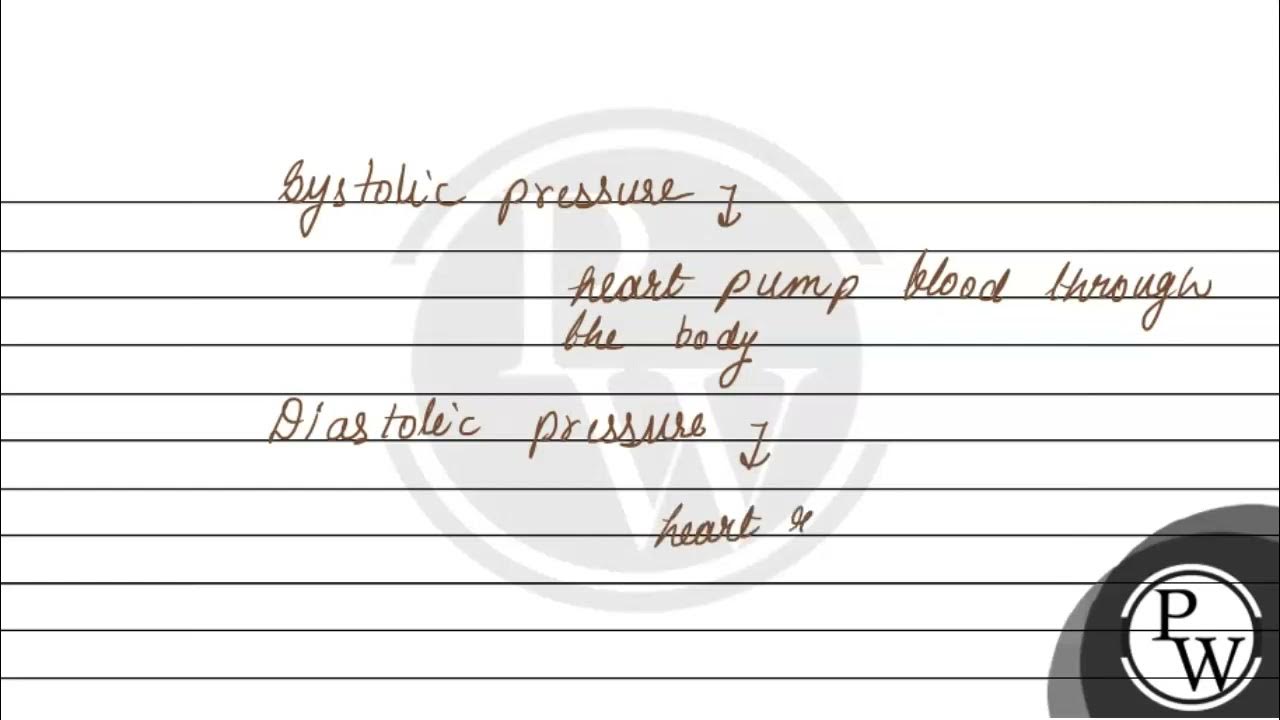 Systolic pressure
heart pump blood through
the body
Diastolic pressure
heart r
P
W
P
W